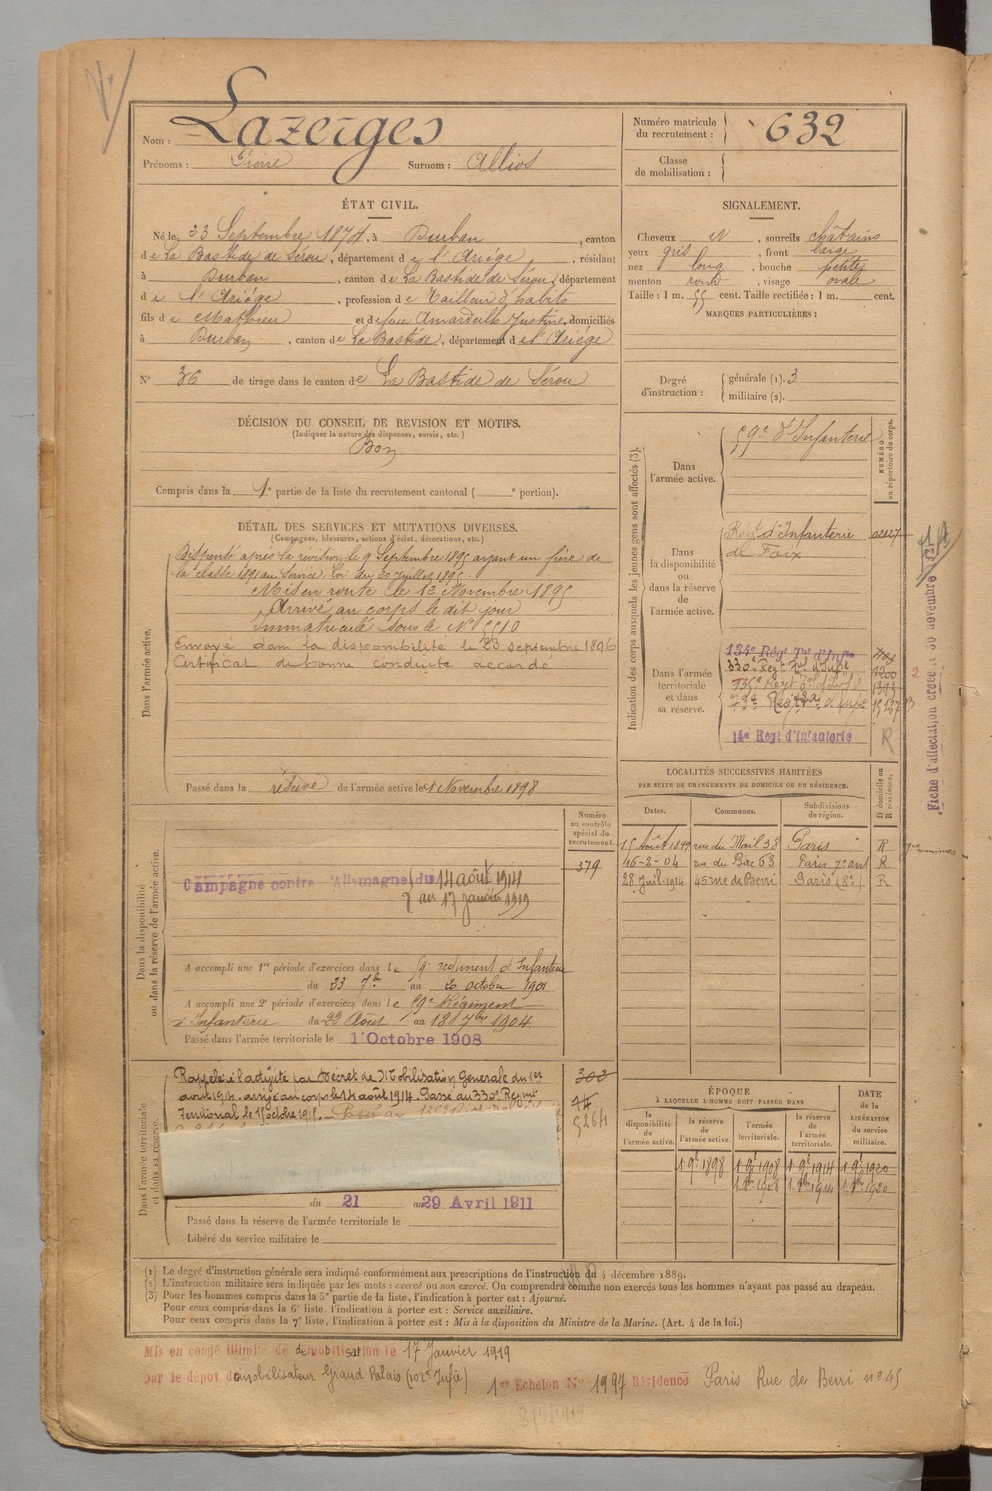 Nom : Lazerges
Prénoms : Pierre Surnom : Allios
Numéro matricule du recrutement : 632
Classe de mobilisation :
ÉTAT CIVIL.
Né le 23 Septembre 1874, à Durban, canton
de La Bastide de Sérou, département de l'Ariège, résidant
à Durban, canton de La Bastide de Sérou, département
de l'Ariège, profession de Tailleur d'habits
fils de Mathieu et de feue Justine, domiciliés
à Durban, canton de La Bastide, département de l'Ariège
N° 36 de tirage dans le canton de La Bastide de Sérou
SIGNALEMENT.
Cheveux N, sourcils châtains
yeux gris, front large
nez long, bouche petite
menton rond, visage ovale
Taille : 1 m. 55 cent. Taille rectifiée : 1 m. cent.
MARQUES PARTICULIÈRES :
Degré d'instruction : générale (1). 3
militaire (2).
DÉCISION DU CONSEIL DE REVISION ET MOTIFS.
(Indiquer la nature des dispenses, sursis, etc.)
Bon
Compris dans la 1e partie de la liste du recrutement cantonal ( e portion).
DÉTAIL DES SERVICES ET MUTATIONS DIVERSES.
(Campagnes, blessures, actions d'éclat, décorations, etc.)
Dans l'armée active.
Dispensé après la révision, le 9 Septembre 1895 ayant un frère de
la classe 1891 au service. Loi du 20 Juillet 1895.
Mis en route le 13 Novembre 1895
Arrivé au corps le dit jour
Immatriculé sous le N° 5510
Envoyé dans la disponibilité le 23 septembre 1896
Certificat de bonne conduite accordé
Passé dans la réserve de l'armée active le 1 Novembre 1898
Indication des corps auxquels les jeunes gens sont affectés (3).
NUMÉRO au répertoire du corps.
Dans l'armée active.
59e d'Infanterie
Dans la disponibilité ou dans la réserve de l'armée active.
Régt d'Infanterie
de Foix
Dans l'armée territoriale et dans sa réserve.
134e Régt Tal d'Infie
330e Régt Tal d'Infie
1200
1393
14e Regt d'Infanterie R
Fiche d'affectation créée le 30 novembre
LOCALITÉS SUCCESSIVES HABITÉES
PAR SUITE DE CHANGEMENTS DE DOMICILE OU DE RÉSIDENCE.
Dates. Communes. Subdivisions de région. D domicile ou R résidence.
15 Août 1899 rue du Mail 38 Paris R
16-2-04 rue du Bac 63 Paris 7e arrt R
28 Juil. 1914 45 rue de Berri Paris (8e) R
Dans la disponibilité ou dans la réserve de l'armée active.
Numéro au contrôle spécial du recrutement.
379
Campagne contre l'Allemagne du 14 août 1914
au 17 janvier 1919
A accompli une 1re période d'exercices dans le 9e régiment d'Infanterie
du 23 7bre au 20 octobre 1901
A accompli une 2e période d'exercices dans le 59e Régiment
d'Infanterie du 22 Août au 18 7bre 1904
Passé dans l'armée territoriale le 1 Octobre 1908
Dans l'armée territoriale et dans sa réserve.
Rappelé à l'activité par Décret de Mobilisation Générale du 1er
août 1914. arrivé au corps le 14 août 1914. Passé au 330e Régmt
Territorial le 15 octobre 1915.
303
74
5264
du 21 au 29 Avril 1911
Passé dans la réserve de l'armée territoriale le
Libéré du service militaire le
ÉPOQUE
À LAQUELLE L'HOMME DOIT PASSER DANS
DATE de la LIBÉRATION du service militaire.
la disponibilité de l'armée active. la réserve de l'armée active. l'armée territoriale. la réserve de l'armée territoriale.
1 9e 1898 1 9e 1908 1 9e 1914 1 9e 1920
1 8e 1908 1 8e 1914 1 8e 1920
(1) Le degré d'instruction générale sera indiqué conformément aux prescriptions de l'instruction du 4 décembre 1889.
(2) L'instruction militaire sera indiquée par les mots : exercé ou non exercé. On comprendra comme non exercés tous les hommes n'ayant pas passé au drapeau.
(3) Pour les hommes compris dans la 5e partie de la liste, l'indication à porter est : Ajourné.
Pour ceux compris dans la 6e liste, l'indication à porter est : Service auxiliaire.
Pour ceux compris dans la 7e liste, l'indication à porter est : Mis à la disposition du Ministre de la Marine. (Art. 4 de la loi.)
Mis en congé illimité de démobilisation le 17 Janvier 1919
par le dépot démobilisateur Grand Palais (102e Infie) 1er Echelon N° 1997 Résidence Paris Rue de Berri n° 45